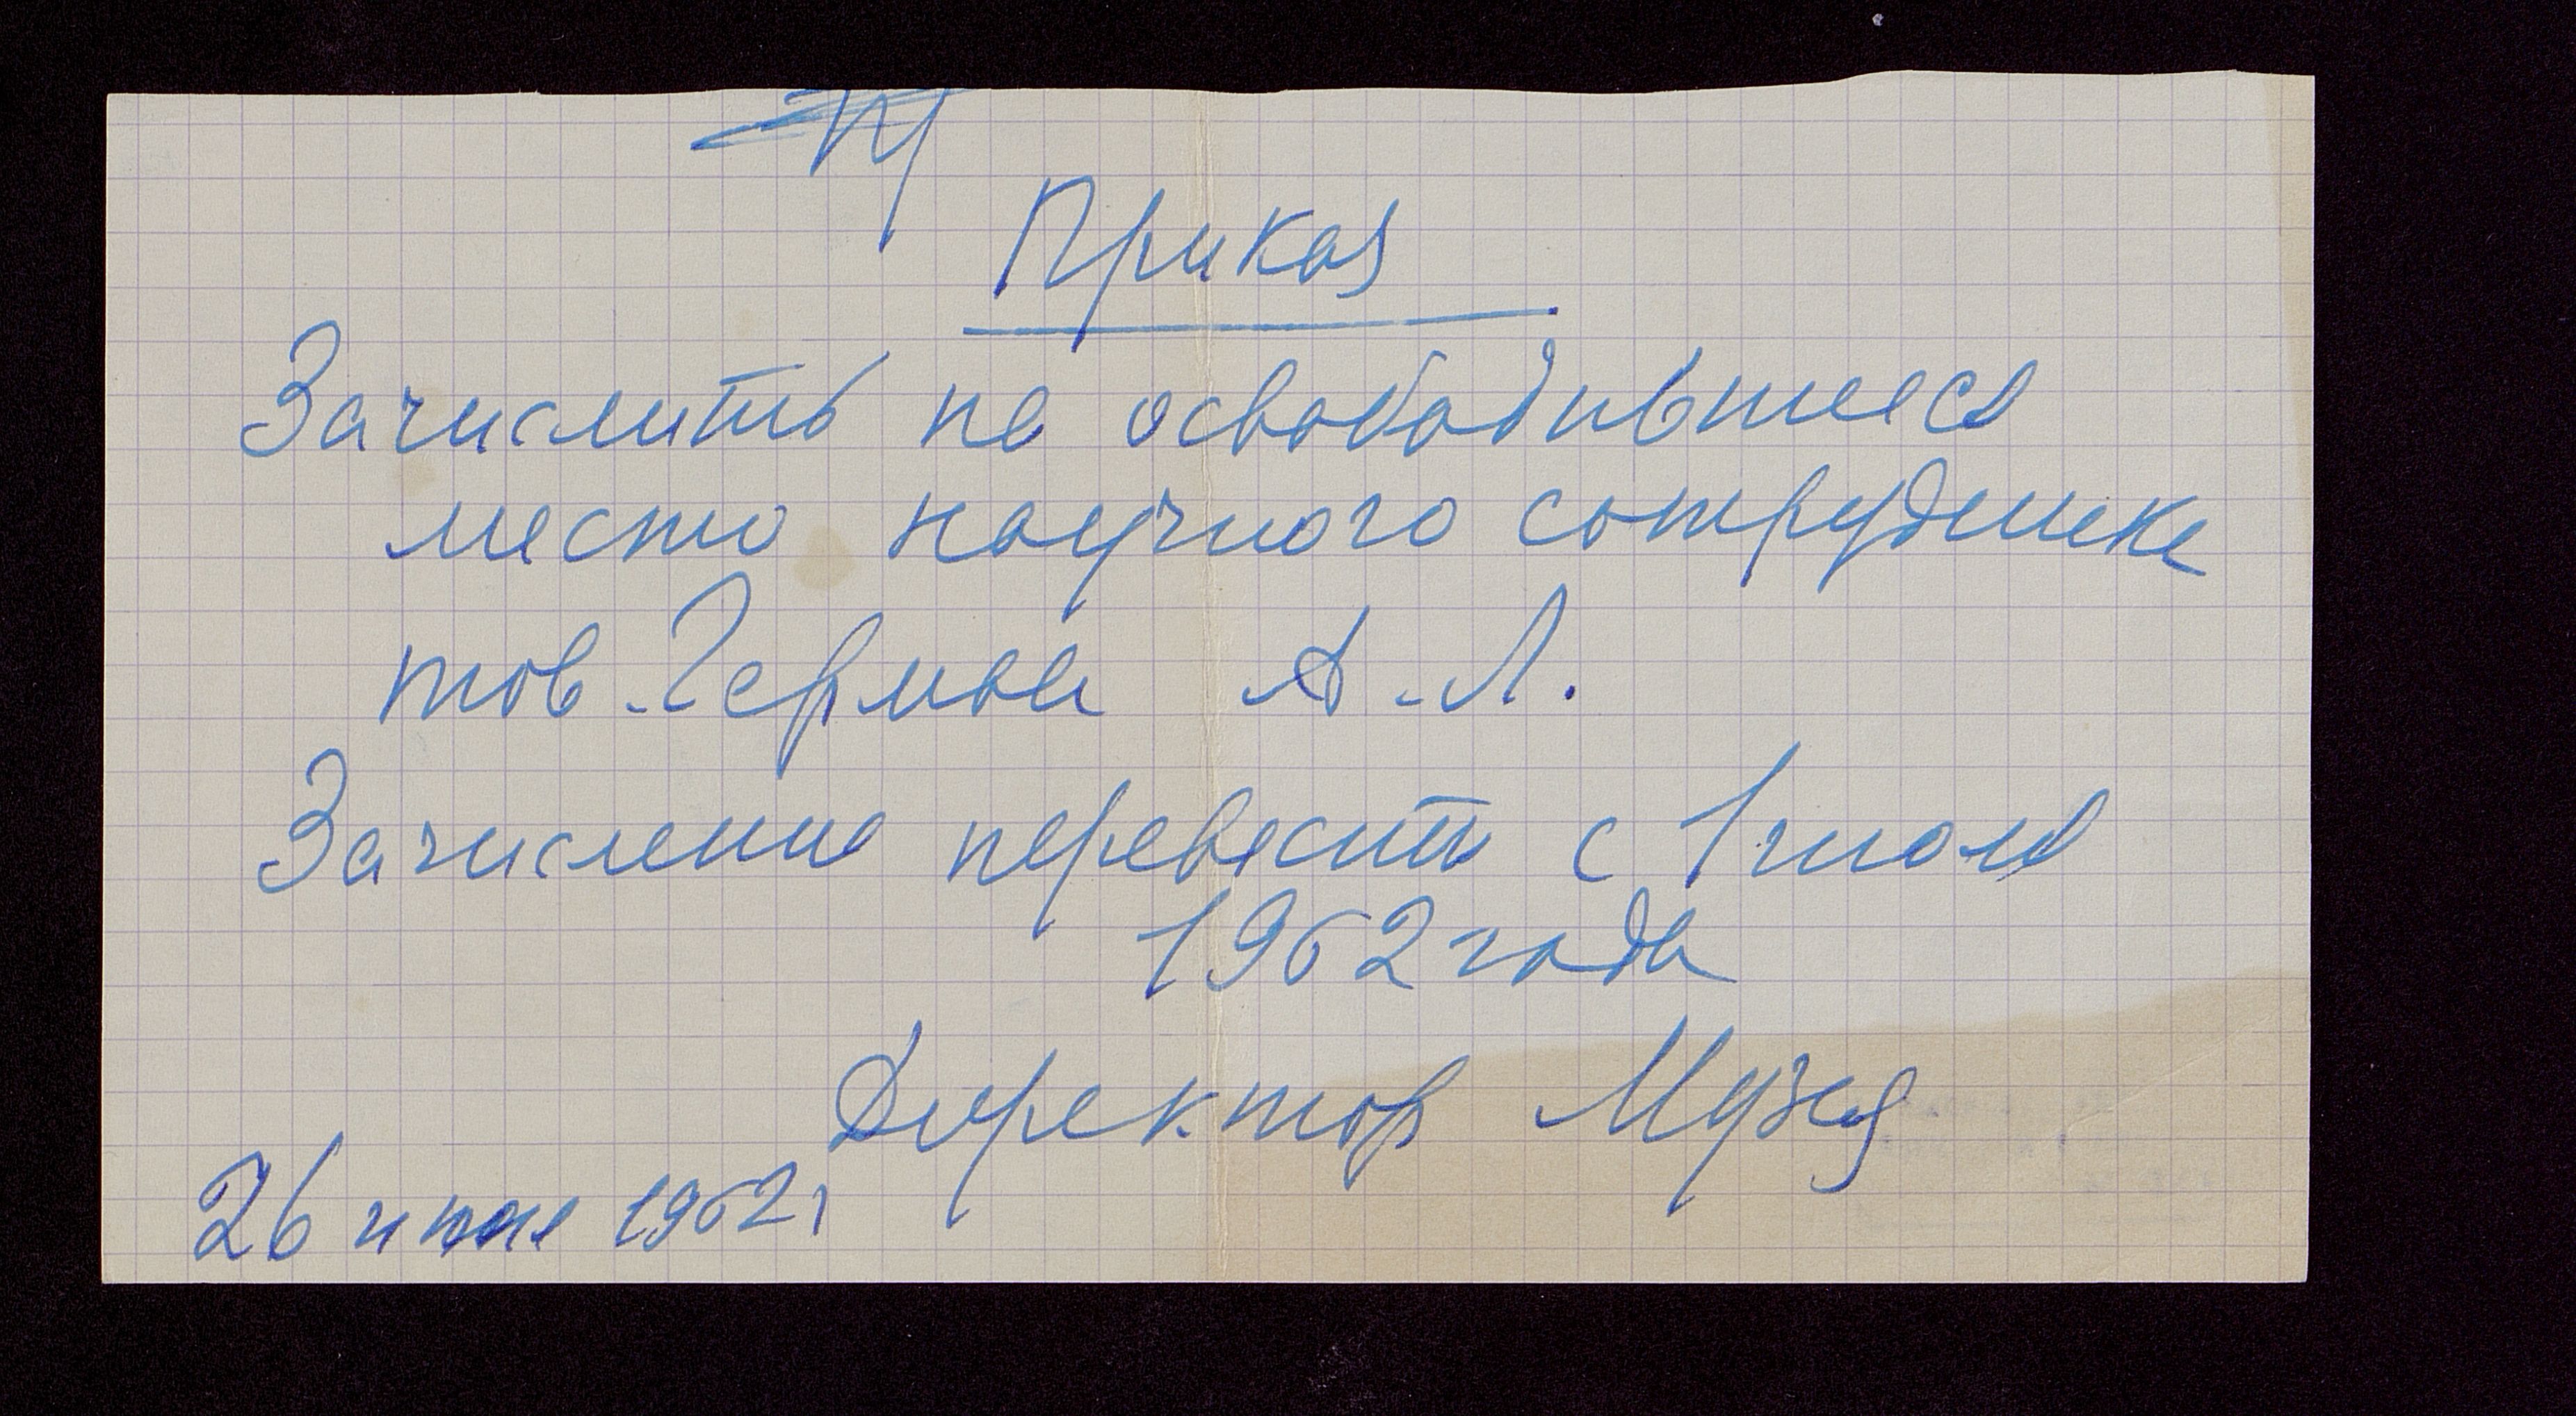 Приказ
Зачислить на освободившееся
место научного сотрудника
тов. Герман А. Л.
Зачисление перевести с 1 июля
1962 года
Директор Музея
26 июня 1962 г